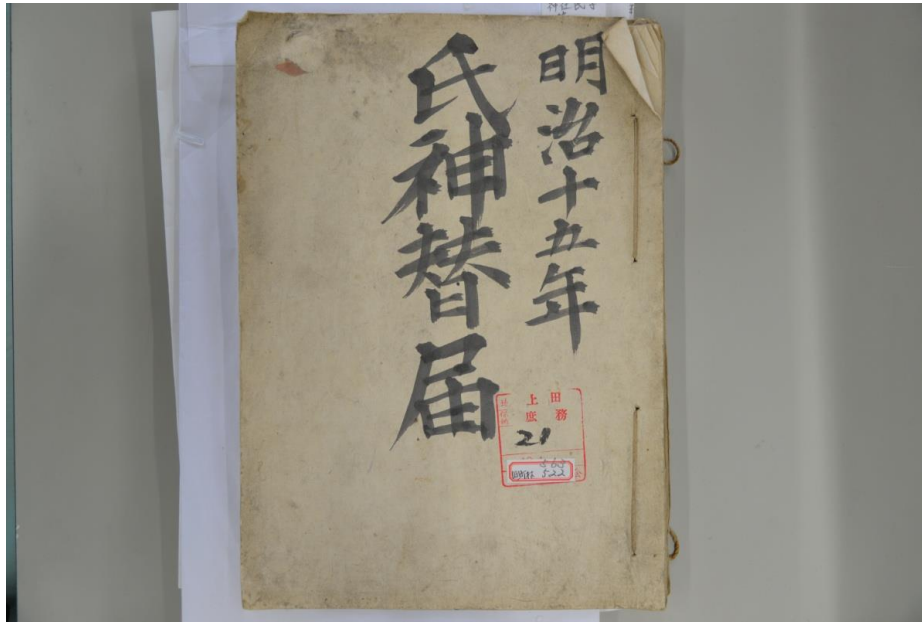 明治十五年
氏神替届
上田
庶務
21
522